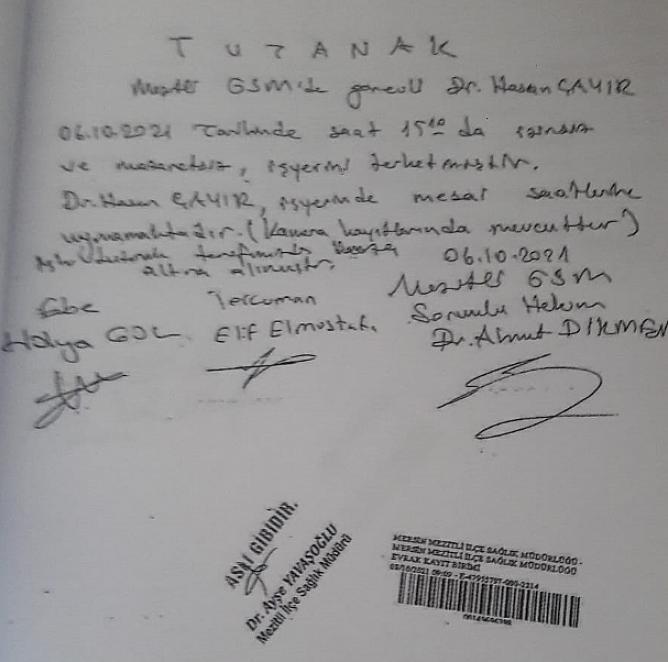 TUTANAK
GSM'de görevli Dr. Hasan ÇAYIR
06.10.2021 Tarihinde saat 15¹⁰ da izinsiz
ve mazeretsiz, işyerini terketmiştir.
Dr. Hasan ÇAYIR, işyerinde mesai saatlerine
uymamaktadır. (Kamera kayıtlarında mevcuttur)
tarafımızda
altına alınmıştır.
06.10.2021
GSM
Ebe
Tercüman
Sorumlu Hekim
Hülya GÖL
Elif Elmustafa
Dr. Ahmet DİKMEN
ASLI GİBİDİR.
Dr. Ayşe YAVAŞOĞLU
Mezitli İlçe Sağlık Müdürü
MERSİN MEZİTLİ İLÇE SAĞLIK MÜDÜRLÜĞÜ -
MERSİN MEZİTLİ İLÇE SAĞLIK MÜDÜRLÜĞÜ
EVRAK KAYIT BİRİMİ